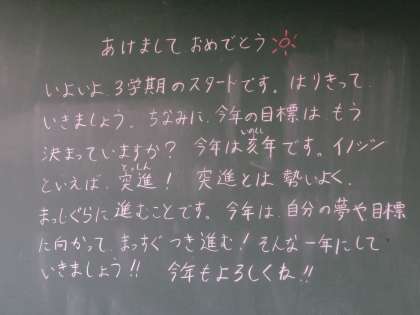 あけまして おめでとう
いよいよ 3学期のスタートです。はりきって
いきましょう。ちなみに、今年の目標は、もう
決まっていますか？ 今年は亥年です。イノシシ
といえば、突進！ 突進とは 勢いよく、
まっしぐらに 進むことです。今年は、自分の夢や目標
に向かって、まっすぐ つき進む！そんな一年にして
いきましょう!! 今年もよろしくね!!